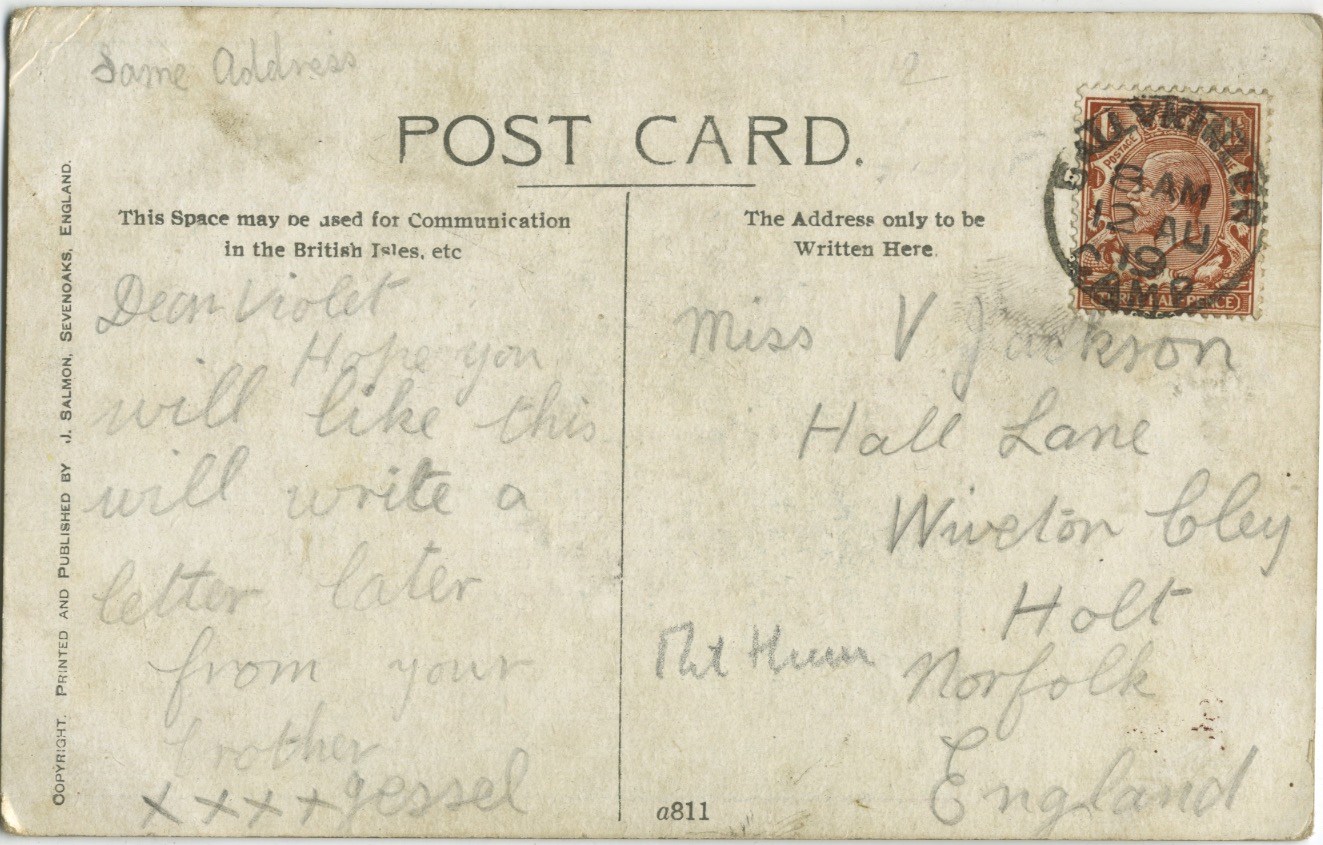 Same Address
12
POST CARD.
This Space may be used for Communication
in the British Isles, etc
The Address only to be
Written Here
BALLYKINLER
8 AM
12 AU
19
CAMP
POSTAGE
REVENUE
THREE HALF PENCE
Dear Violet
Hope you
will like this
will write a
letter later
from your
brother
x x x x Jessel
Miss V Jackson
Hall Lane
Wiveton Cley
Holt
Norfolk
England
a811
COPYRIGHT. PRINTED AND PUBLISHED BY J. SALMON, SEVENOAKS, ENGLAND.